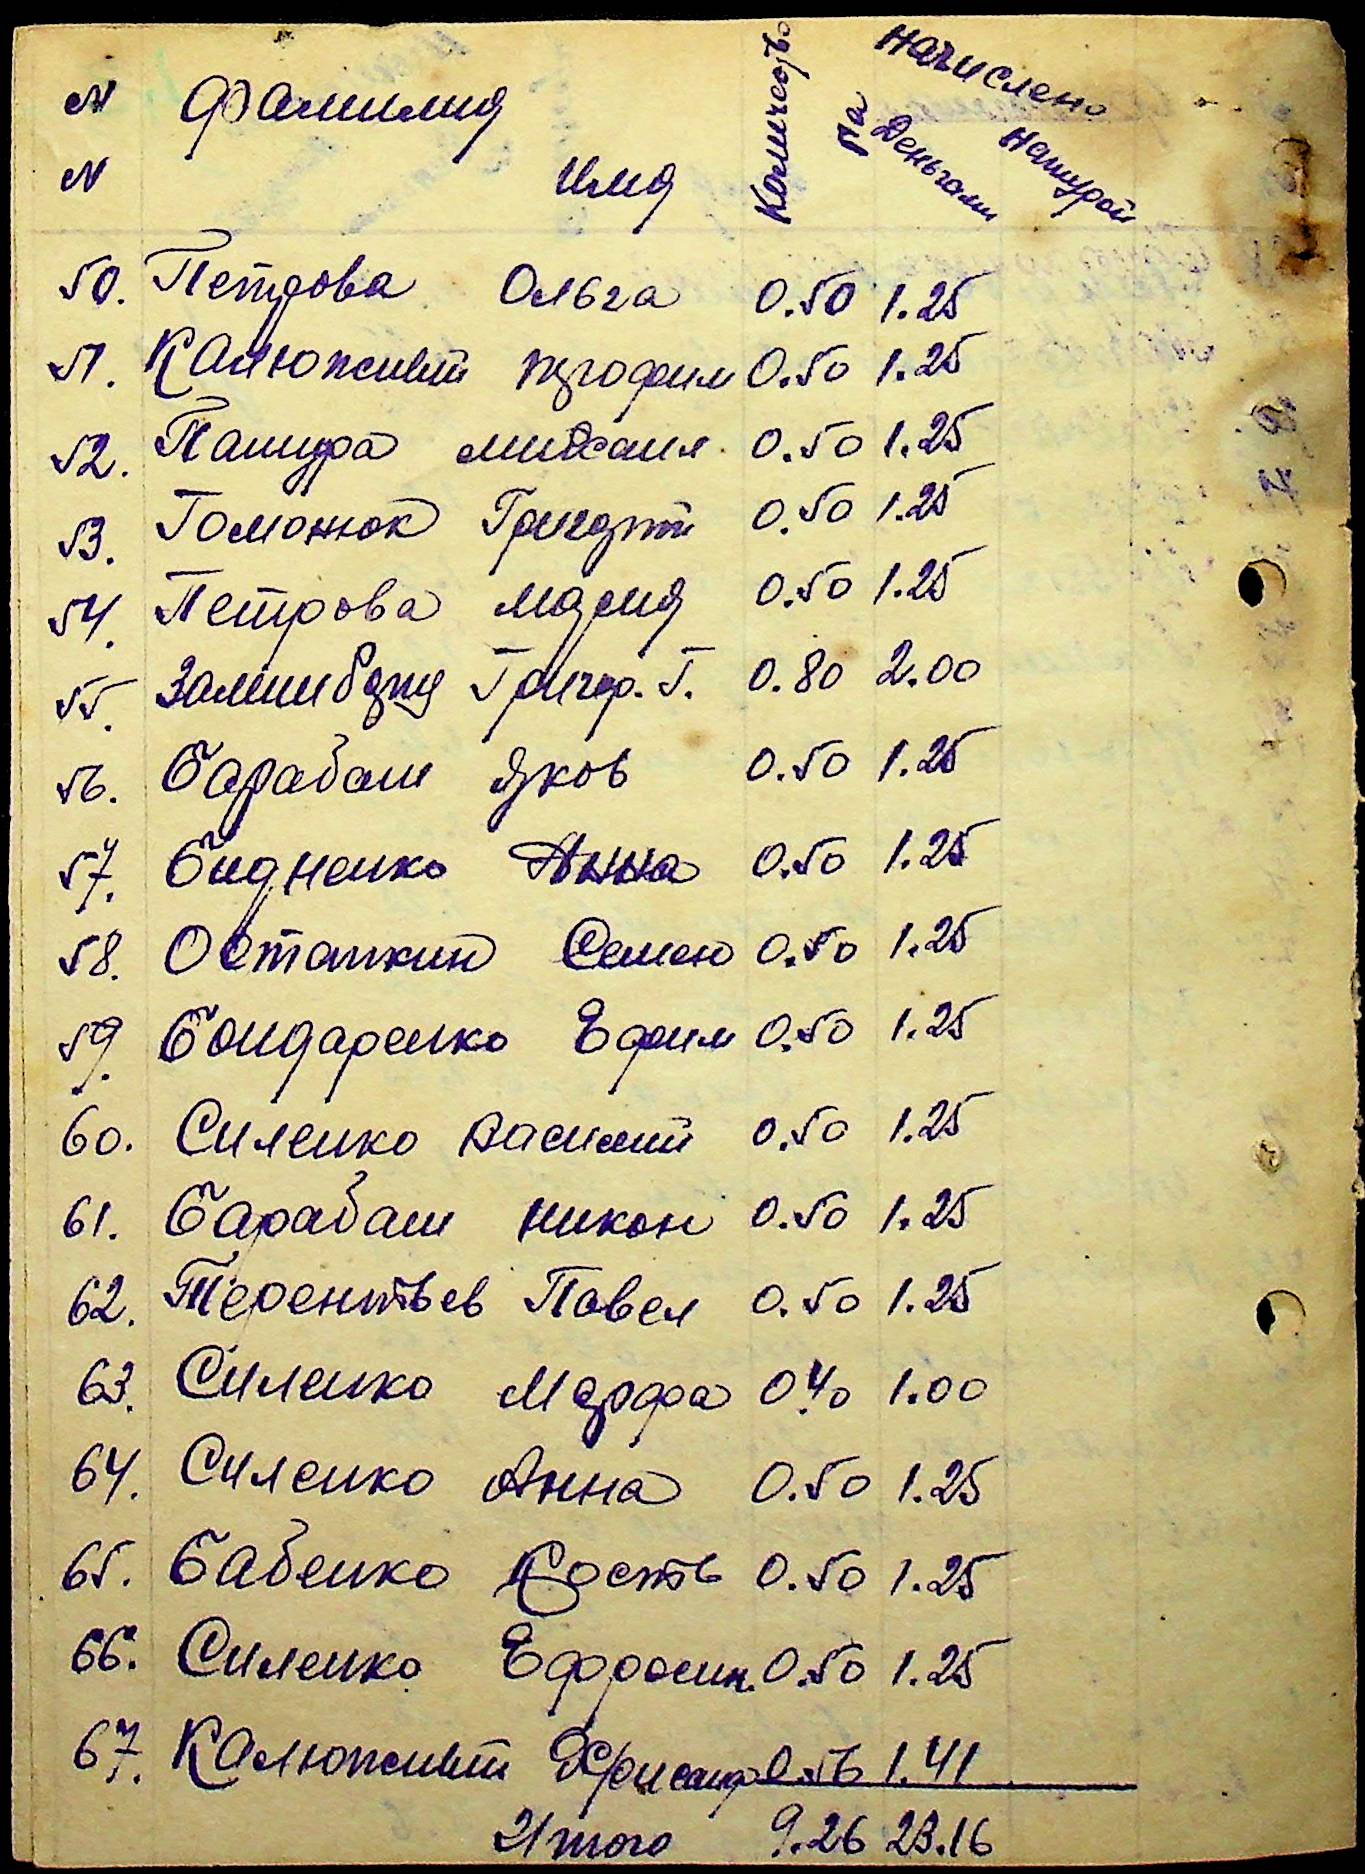 N Фамилия Количество га Начислено
N Имя Деньгами Натурой
50. Петрова Ольга 0.50 1.25
51. Калюжный Трофим 0.50 1.25
52. Пашура Михаил 0.50 1.25
53. Гоможок Григорий 0.50 1.25
54. Петрова Мария 0.50 1.25
55. Григор. Г. 0.80 2.00
56. Барабаш Яков 0.50 1.25
57. Бидненко Анна 0.50 1.25
58. Остапкин Семен 0.50 1.25
59. Бондаренко Ефим 0.50 1.25
60. Силенко Василий 0.50 1.25
61. Барабаш Никон 0.50 1.25
62. Терентьев Павел 0.50 1.25
63. Силенко Марфа 0.40 1.00
64. Силенко Анна 0.50 1.25
65. Бабенко Кость 0.50 1.25
66. Силенко Ефросин. 0.50 1.25
67. Калюжный 0.56 1.41
Итого 9.26 23.16